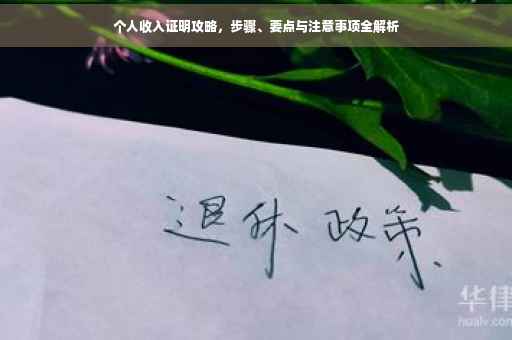 个人收入证明攻略，步骤、要点与注意事项全解析
退休 政策
华律
hualv.com